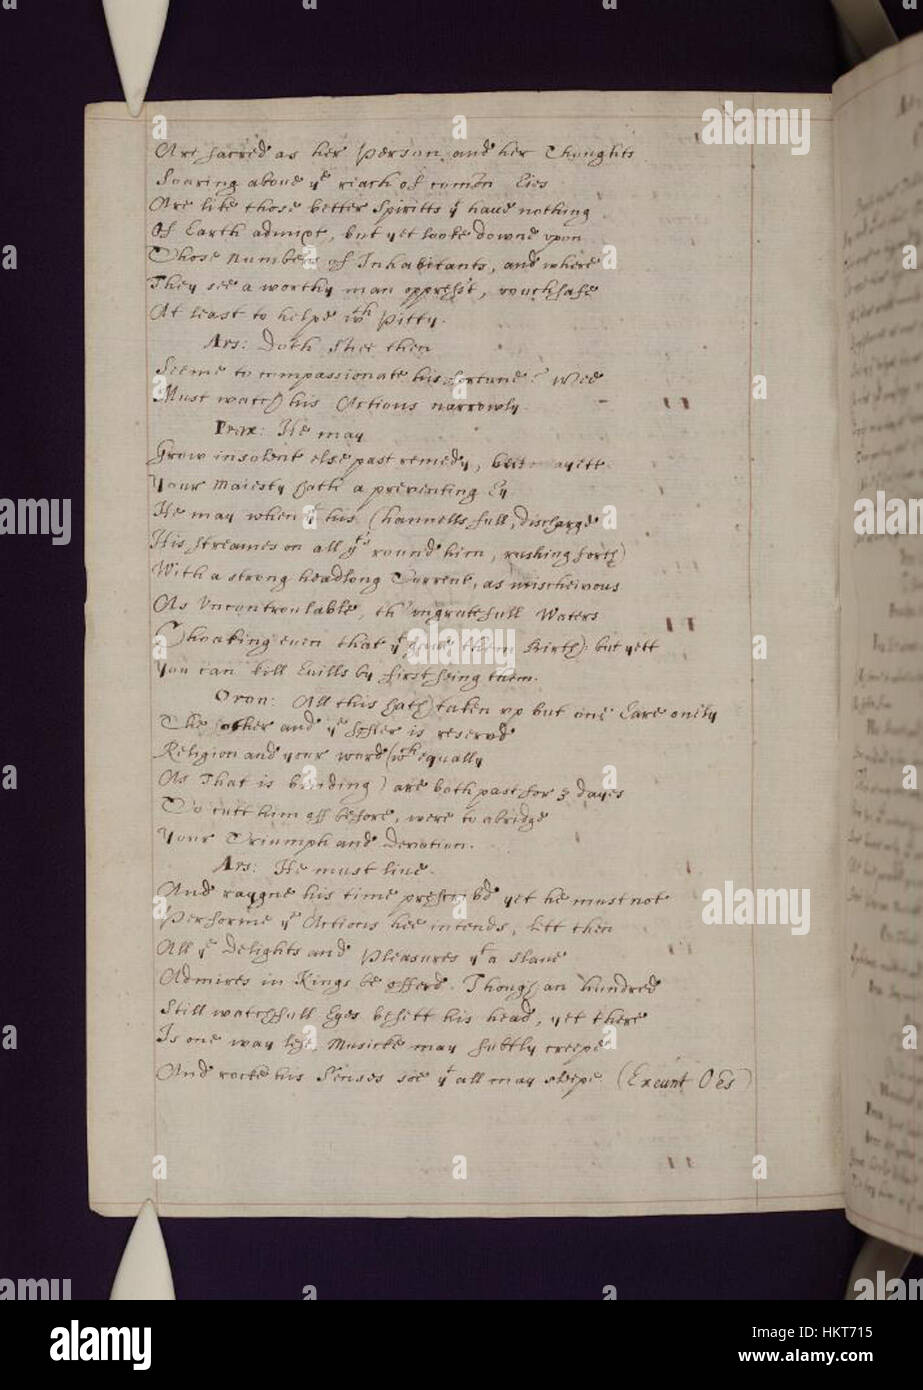 Are sacred as her Person, and her Thoughts
Soaring aboue yᵉ reach of com̃on Eies
Are like those better Spiritts yᵗ haue nothing
Of Earth admixt, but yet looke downe vpon
Those numbers of Inhabitants, and where
They see a worthy man opprest, vouchsafe
At least to helpe wᵗʰ Pitty.
Ars: Doth Shee then
Seeme to compassionate his fortune? Wee
Must watch his Actions narrowly.
Prex: He may
Grow insolent else past remedy, but
Your Maiesty hath a preventing Ey
He may when yᵗ his Channells full, discharge
His streames on all yᵗ's round him, rushing forth
With a strong headlong Current, as mischeivous
As Vncontroulable, th'ungratefull Waters
Choaking euen that yᵗ gaue them Birth: but yett
You can kill Euills by first seing them.
Oron: All this hath taken vp but one Eare onely
The other and yᵉ is reservd
Religion and your word (wᶜʰ equally
As That is binding) are both past for 3 dayes
To cutt him off before, were to abridge
Your Triumph and Devotion.
Ars: He must liue
And raygne his time prescribd yet he must not
Performe yᵉ Actions hee intends, lett then
All yᵉ Delights and Pleasures yᵗ a slaue
Admires in Kings be offerd. Though an hundred
Still watchfull Eyes besett his head, yet there
Is one way left, Musicke may subtly creepe
And rocke his Senses soe yᵗ all may sleepe. (Exeunt Oẽs)
alamy
a
alamy
Image ID: HKT715
www.alamy.com